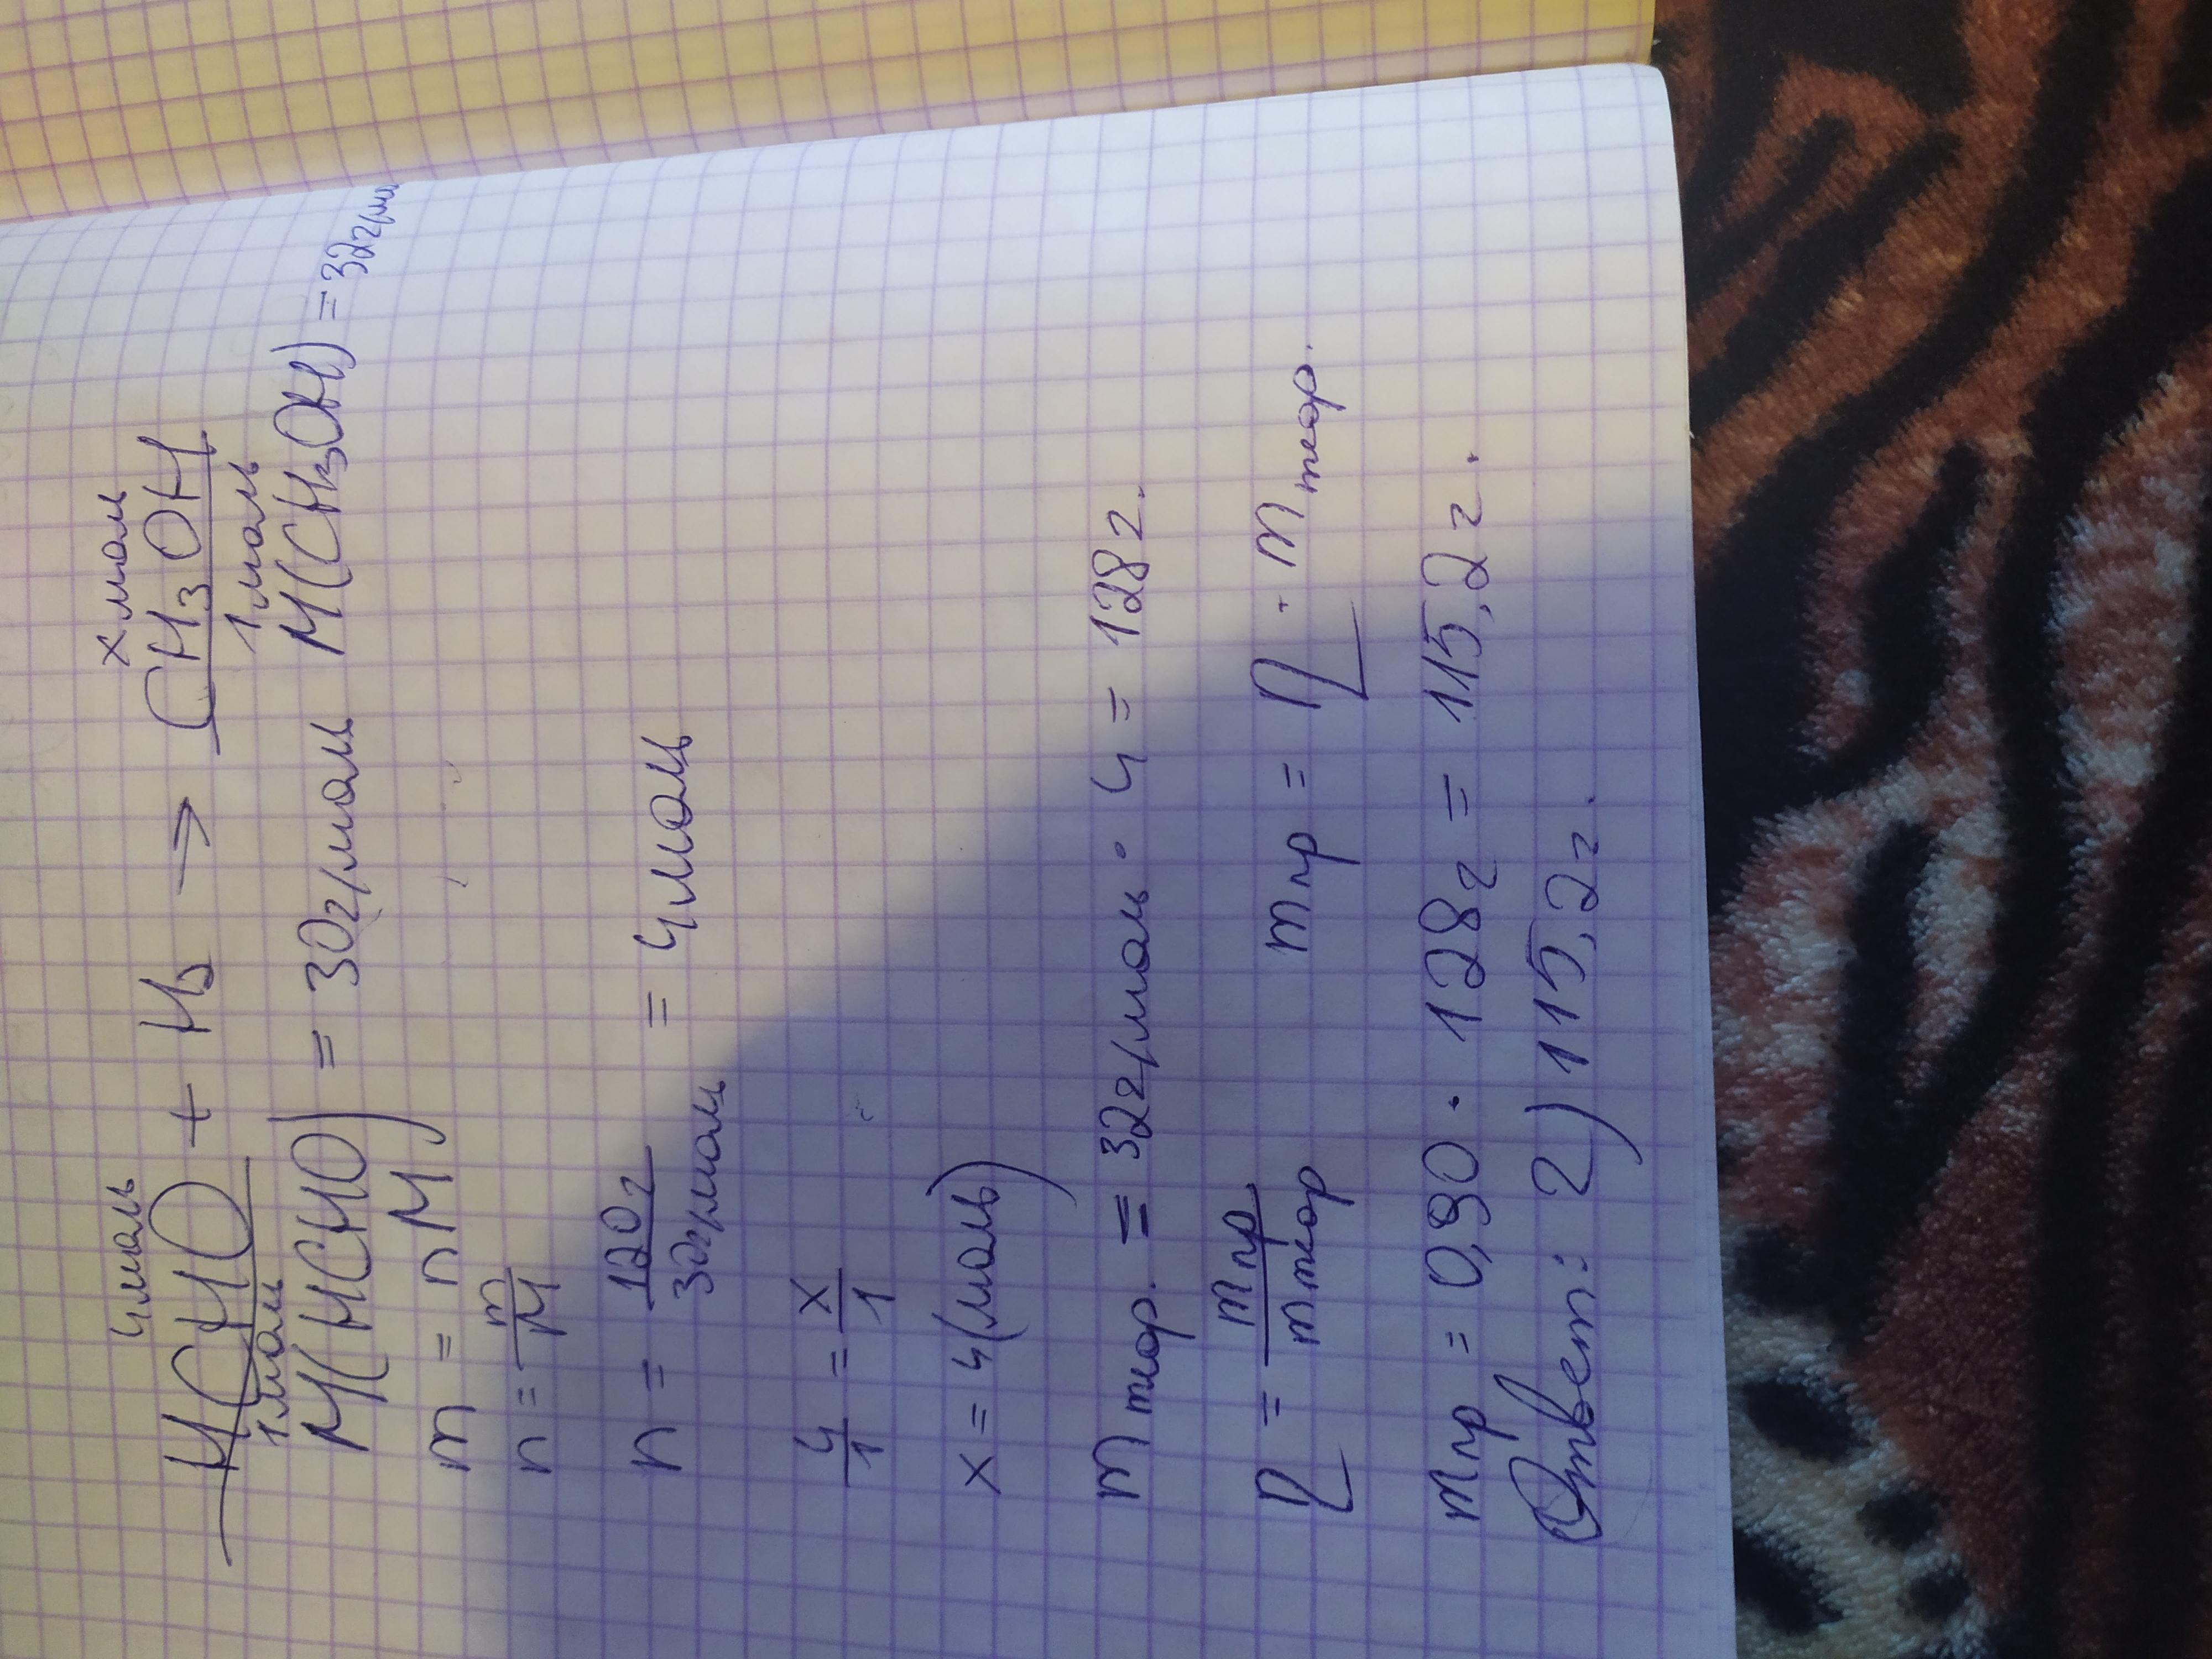 4моль х моль
HCHO + H₂ → CH₃OH
1моль 1моль
M(HCHO) = 30г/моль M(CH₃OH) = 32г/мол
m = n M
n = m/M
n = 120г/30г/моль = 4моль
4/1 = x/1
x = 4(моль)
m теор. = 32г/моль · 4 = 128г.
η = m пр/m теор m пр = η · m теор.
m пр = 0,90 · 128г = 115,2г.
Ответ: 2) 115,2г.